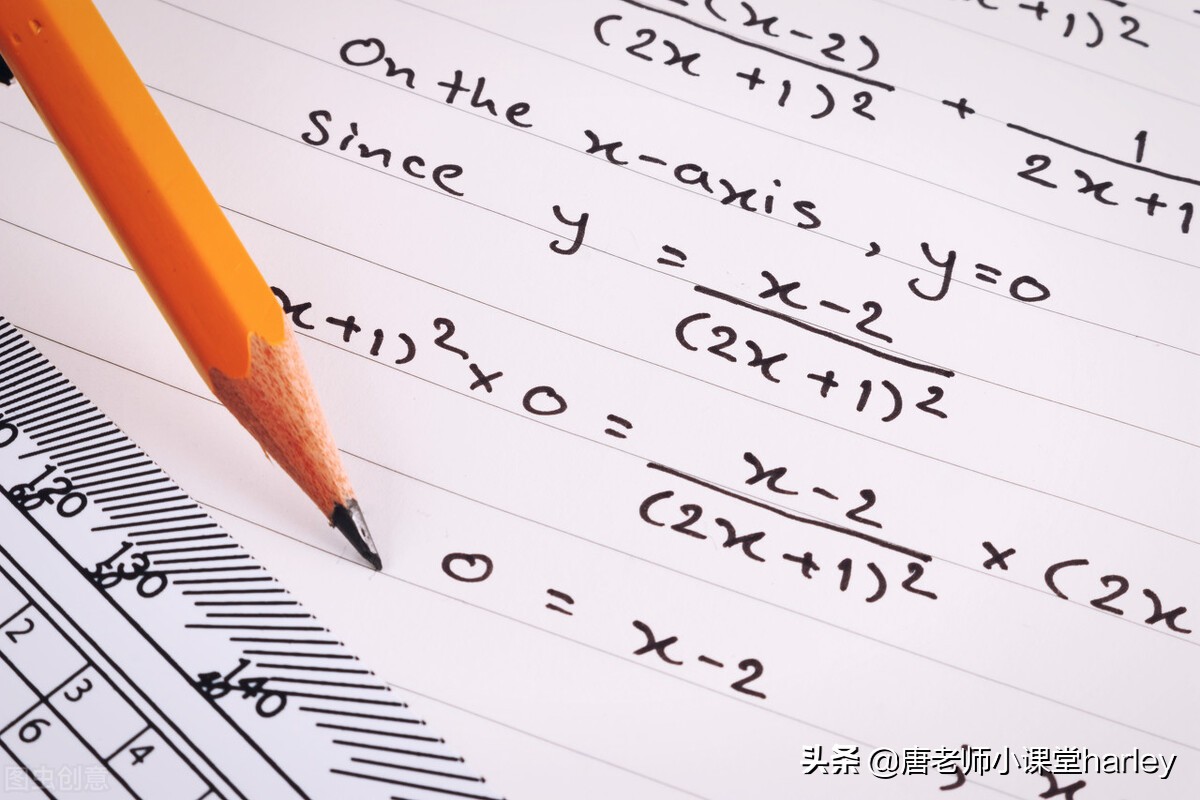 (x-2)
(2x+1)² + 1
2x+1
x+1)²
On the x-axis, y=0
Since y = x-2
(2x+1)²
x+1)² × 0 = x-2
(2x+1)² × (2x
0 = x-2
120
130
140
2
3
4
6
头条 @唐老师小课堂harley
图虫创意